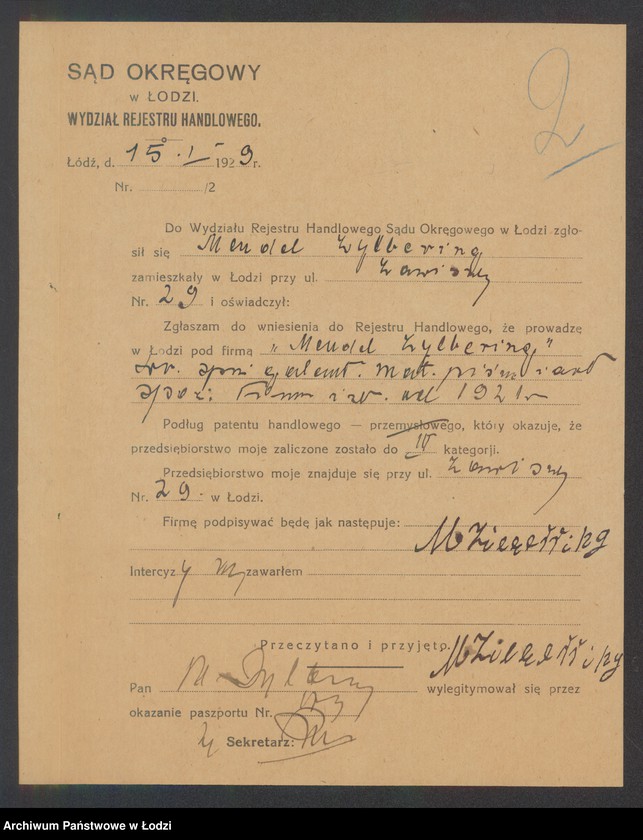 2
SĄD OKRĘGOWY
w ŁODZI.
WYDZIAŁ REJESTRU HANDLOWEGO.
Łódź, d. 15. I 1929 r.
Nr. /2
Do Wydziału Rejestru Handlowego Sądu Okręgowego w Łodzi zgło-
sił się Mendel Zylbering
zamieszkały w Łodzi przy ul. Zawiszy
Nr. 29 i oświadczył:
Zgłaszam do wniesienia do Rejestru Handlowego, że prowadzę
w Łodzi pod firmą „Mendel Zylbering”
galant. mat. piśm i art
spoż: Firma ist. od 1921 r
Podług patentu handlowego — przemysłowego, który okazuje, że
przedsiębiorstwo moje zaliczone zostało do IV kategorji.
Przedsiębiorstwo moje znajduje się przy ul. Zawiszy
Nr. 29. w Łodzi.
Firmę podpisywać będę jak następuje:
Intercyzy zawarłem
Przeczytano i przyjęto.
Pan wylegitymował się przez
okazanie paszportu Nr.
Sekretarz:
Archiwum Państwowe w Łodzi